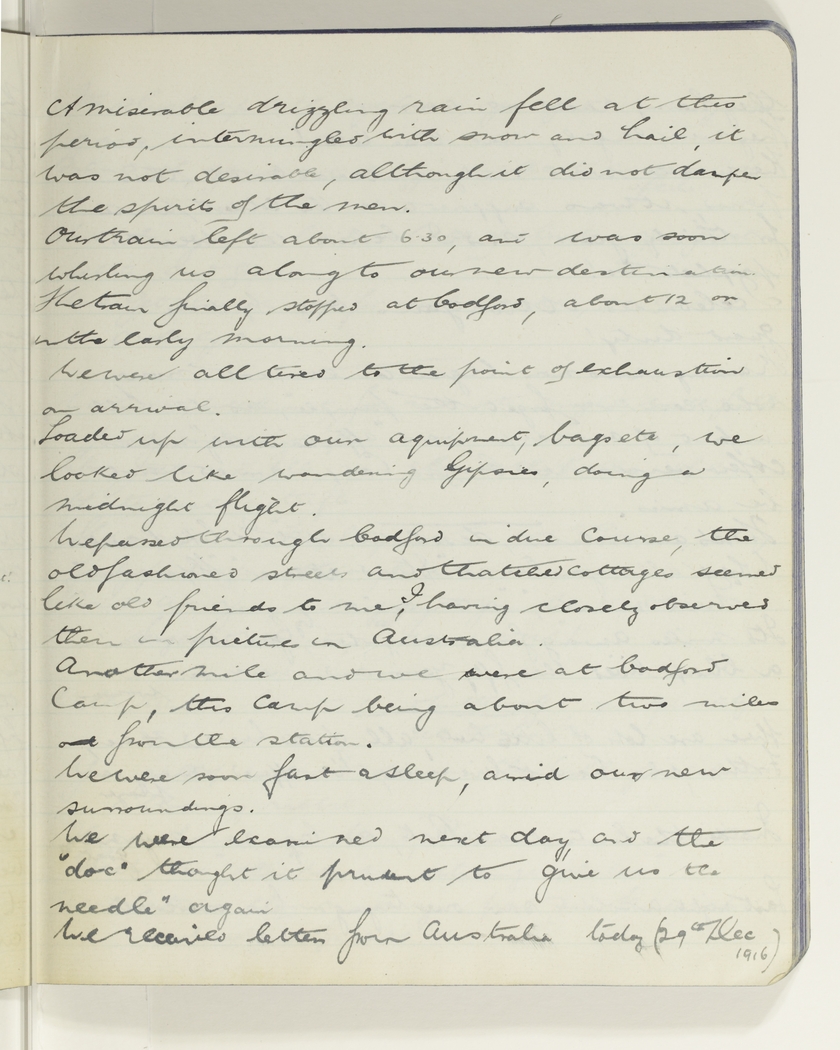 A miserable drizzling rain fell at this
period, intermingled with snow and hail, it
was not desirable, although it did not damper
the spirits of the men.
Our train left about 6.30, and was soon
whirling us along to our new destination
The train finally stopped at Codford, about 12 or
in the early morning.
We were all tired to the point of exhaustion
on arrival.
Loaded up with our equipment, bags etc, we
looked like wandering Gipsies, doing a
midnight flight.
We passed through Codford in due course, the
old fashioned streets and thatched cottages seemed
like old friends to me, I having closely observed
them in pictures in Australia.
Another mile and we were at Codford
Camp, this camp being about two miles
from the station.
We were soon fast asleep, amid our new
surroundings.
We were examined next day, and the
"doc" thought it prudent to give us the
needle" again
We received letters from Australia today (29th Dec
1916)